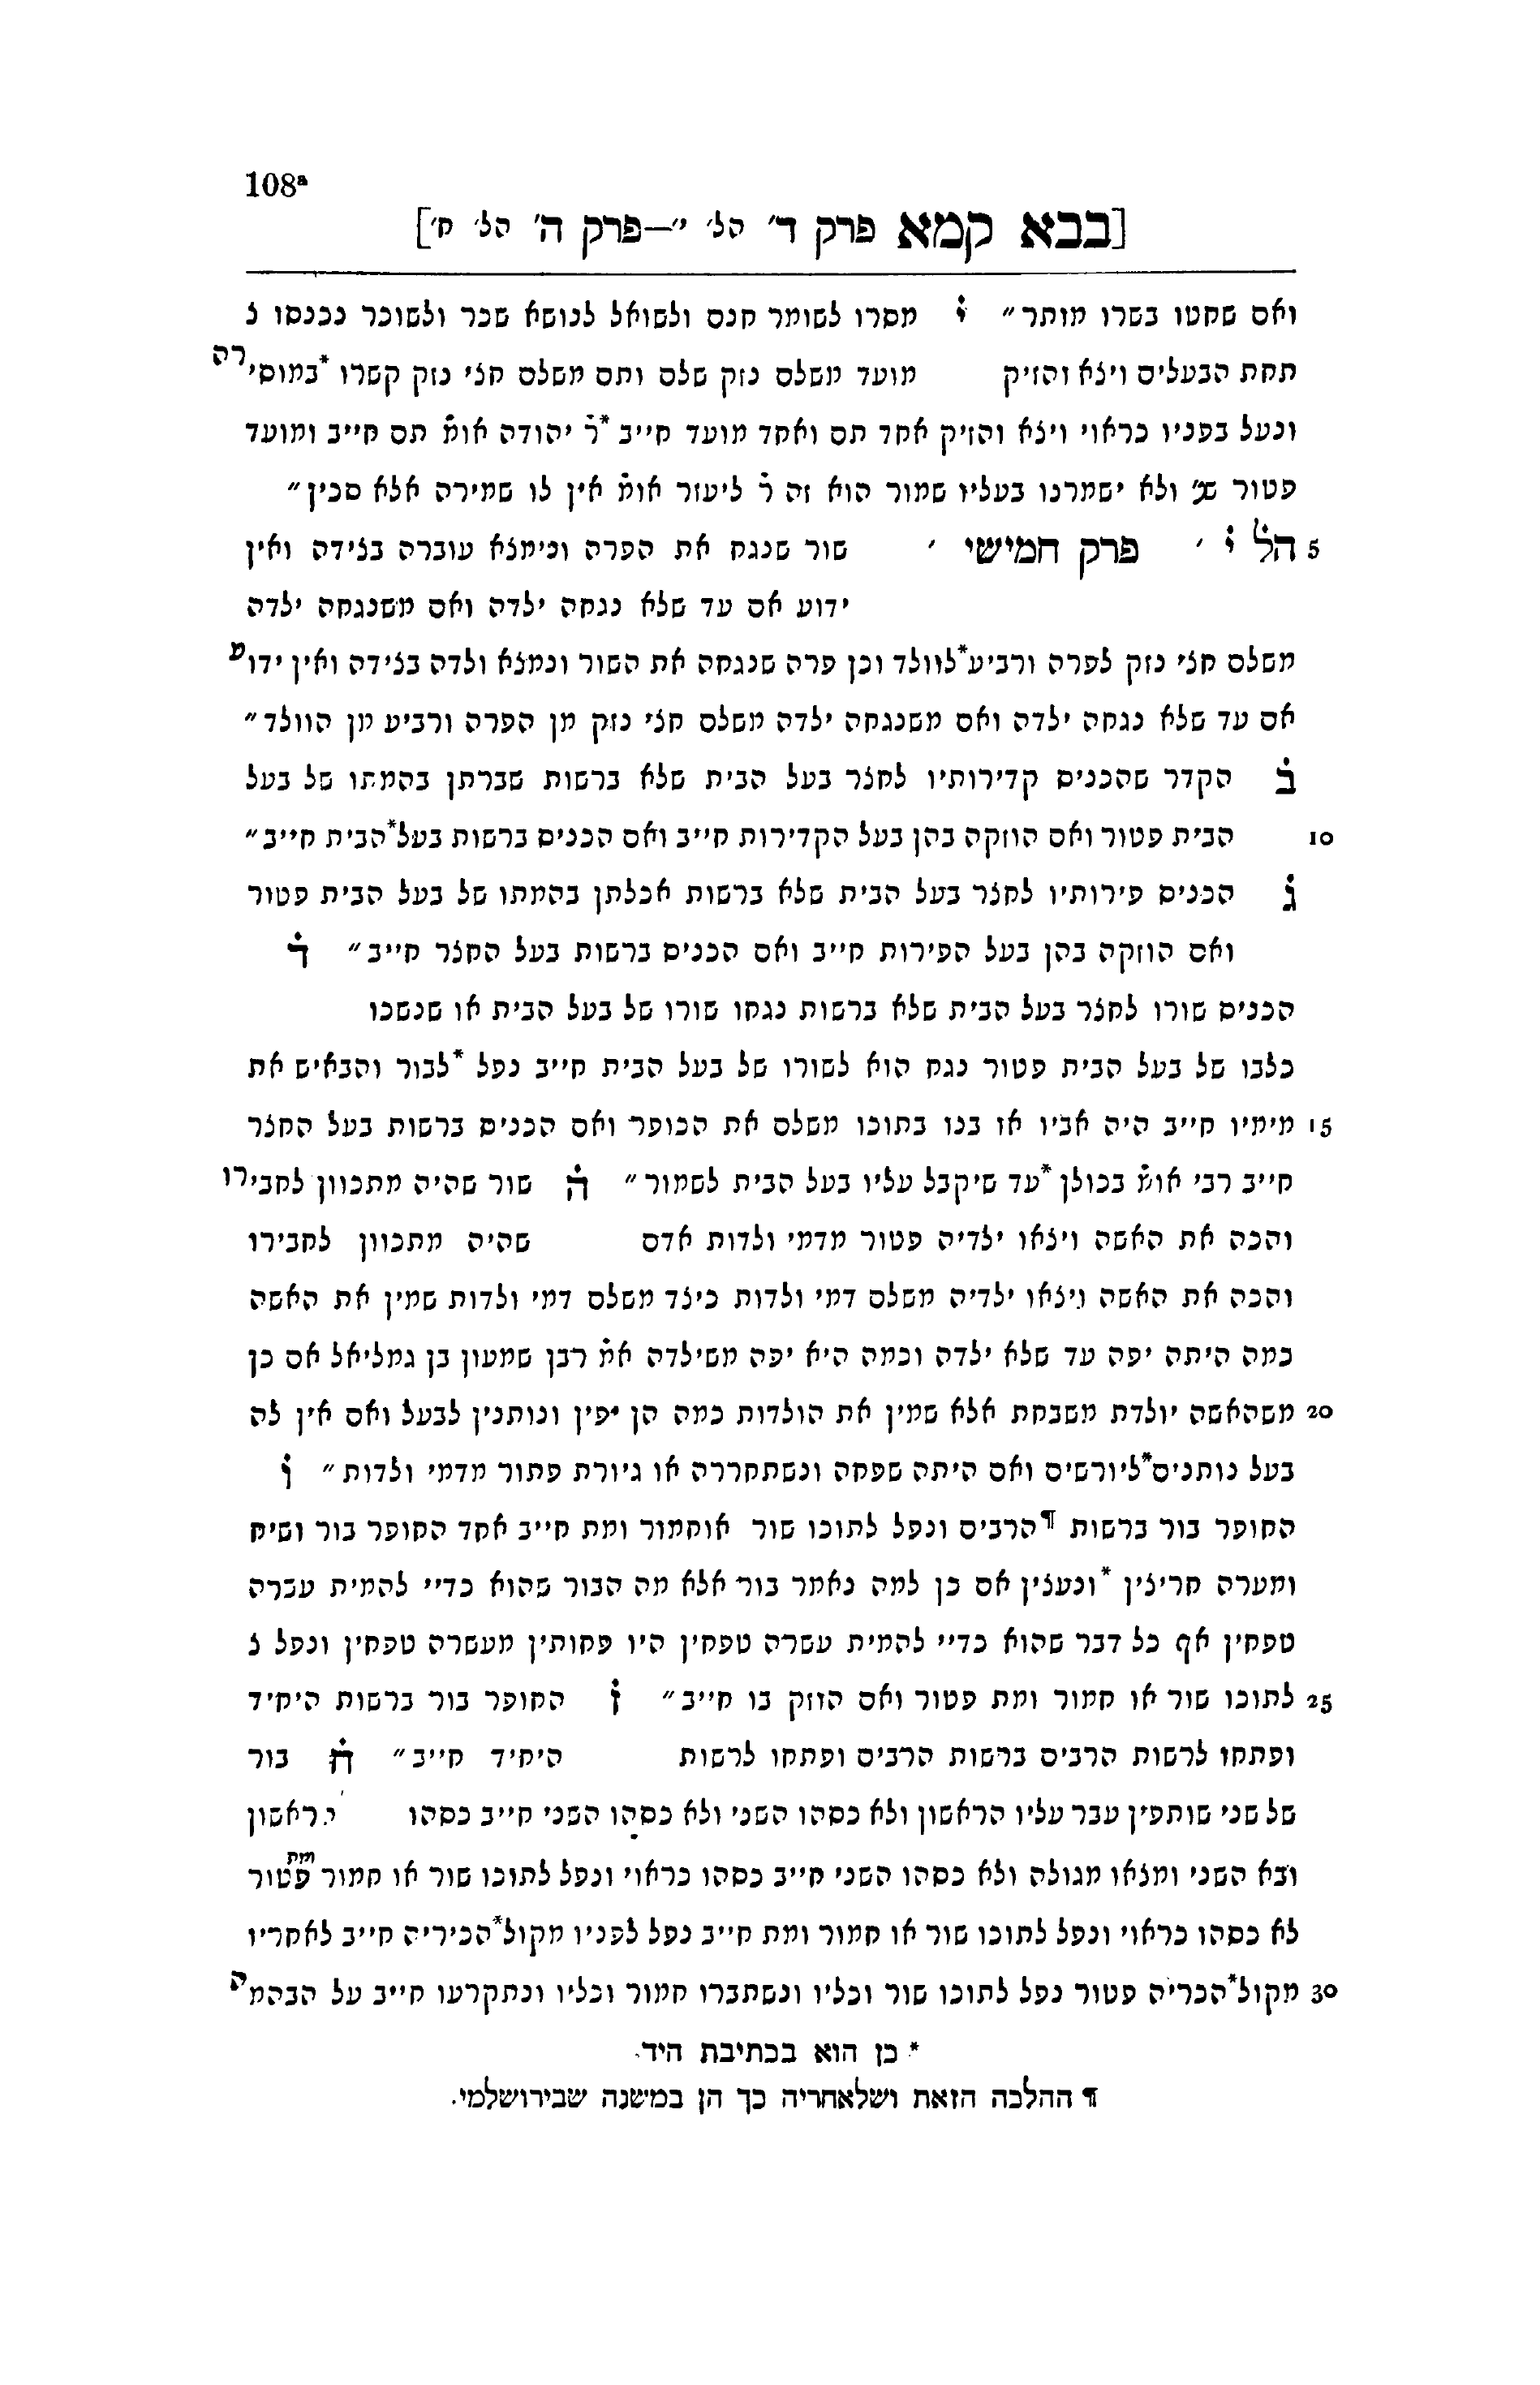 108a
[בבא קמא פרק ד' הל' י'—פרק ה' הל' ח']
ואם שחטו בשרו מותר״ י מסרו לשומר חנם ולשואל לנושא שכר ולשוכר נכנסו נ
תחת הבעלים ויצא והזיק מועד משלם נזק שלם ותם משלם חצי נזק קשרו *במוסירה
ונעל בפניו כראוי ויצא והזיק אחד תם ואחד מועד חייב *ר יהודה אומ תם חייב ומועד
פטור שנ ולא ישמרנו בעליו שמור הוא זה ר ליעזר אומ אין לו שמירה אלא סכין״
5 הל י ׳ פרק חמישי ׳ שור שנגח את הפרה ונימצא עוברה בצידה ואין
ידוע אם עד שלא נגחה ילדה ואם משנגחה ילדה
משלם חצי נזק לפרה ורביע*לוולד וכן פרה שנגחה את השור ונמצא ולדה בצידה ואין ידוע
אם עד שלא נגחה ילדה ואם משנגחה ילדה משלם חצי נזק מן הפרה ורביע מן הוולד״
ב הקדר שהכניס קדירותיו לחצר בעל הבית שלא ברשות שברתן בהמתו של בעל
10 הבית פטור ואם הוזקה בהן בעל הקדירות חייב ואם הכניס ברשות בעל*הבית חייב״
ג הכניס פירותיו לחצר בעל הבית שלא ברשות אכלתן בהמתו של בעל הבית פטור
ואם הוזקה בהן בעל הפירות חייב ואם הכניס ברשות בעל החצר חייב״ ד
הכניס שורו לחצר בעל הבית שלא ברשות נגחו שורו של בעל הבית או שנשכו
כלבו של בעל הבית פטור נגח הוא לשורו של בעל הבית חייב נפל *לבור והבאיש את
15 מימיו חייב היה אביו אז בנו בתוכו משלם את הכופר ואם הכניס ברשות בעל החצר
חייב רבי אומ בכולן *עד שיקבל עליו בעל הבית לשמור״ ה שור שהיה מתכוון לחבירו
והכה את האשה ויצאו ילדיה פטור מדמי ולדות אדם שהיה מתכוון לחבירו
והכה את האשה ויצאו ילדיה משלם דמי ולדות כיצד משלם דמי ולדות שמין את האשה
כמה היתה יפה עד שלא ילדה וכמה היא יפה משילדה אמ רבן שמעון בן גמליאל אם כן
20 משהאשה יולדת משבחת אלא שמין את הולדות כמה הן יפין ונותנין לבעל ואם אין לה
בעל נותנים*ליורשים ואם היתה שפחה ונשתחררה או גיורת פתור מדמי ולדות״ ו
החופר בור ברשות ¶הרבים ונפל לתוכו שור אוחמור ומת חייב אחד החופר בור ושיח
ומערה חריצין *ונעצין אם כן למה נאמר בור אלא מה הבור שהוא כדיי להמית עשרה
טפחין אף כל דבר שהוא כדיי להמית עשרה טפחין היו פחותין מעשרה טפחין ונפל נ
25 לתוכו שור או חמור ומת פטור ואם הוזק בו חייב״ ז החופר בור ברשות היחיד
ופתחו לרשות הרבים ברשות הרבים ופתחו לרשות היחיד חייב״ ח בור
של שני שותפין עבר עליו הראשון ולא כסהו השני ולא כסהו השני חייב כסהו הראשון
ובא השני ומצאו מגולה ולא כסהו השני חייב כסהו כראוי ונפל לתוכו שור או חמור ומת פטור
לא כסהו כראוי ונפל לתוכו שור או חמור ומת חייב נפל לפניו מקול*הכיריה חייב לאחריו
30 מקול*הכריה פטור נפל לתוכו שור וכליו ונשתברו חמור וכליו ונתקרעו חייב על הבהמה
* כן הוא בכתיבת היד.
¶ ההלכה הזאת ושלאחריה כך הן במשנה שבירושלמי.